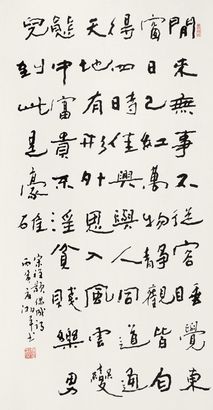 閒來無事不從容睡覺東
窗日已紅萬物靜觀皆自
得四時佳興與人同道通
天地有形外思入風雲變
態中富貴不淫貧賤樂男
兒到此是豪雄
宋程顥偶成詩